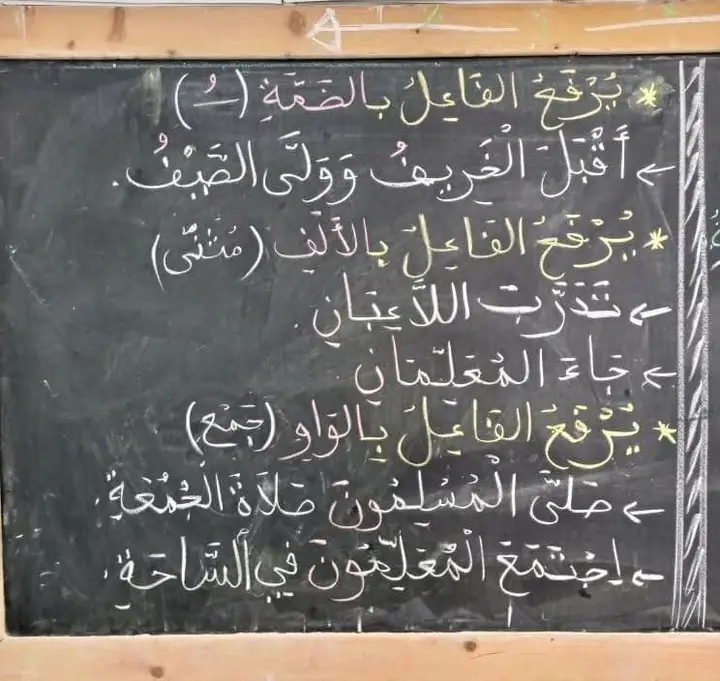 * يُرْفَعُ الفَاعِلُ بالضَمَّةِ (ـُ)
← أَقْبَلَ الْخَرِيفُ وَوَلَّى الصَّيْفُ.
* يُرْفَعُ الفَاعِلُ بِالأَلِفِ (مُثَنَّى)
← تَدَرَّبَ اللاَّعِبَانِ.
← جَاءَ المُعَلِّمَانِ
* يُرْفَعُ الفَاعِلُ بِالوَاوِ (جَمْع)
← صَلَّى الْمُسْلِمُونَ صَلاَةَ الْجُمُعَةِ.
← اِجْتَمَعَ الْمُعَلِّمُونَ فِي السَّاحَةِ.